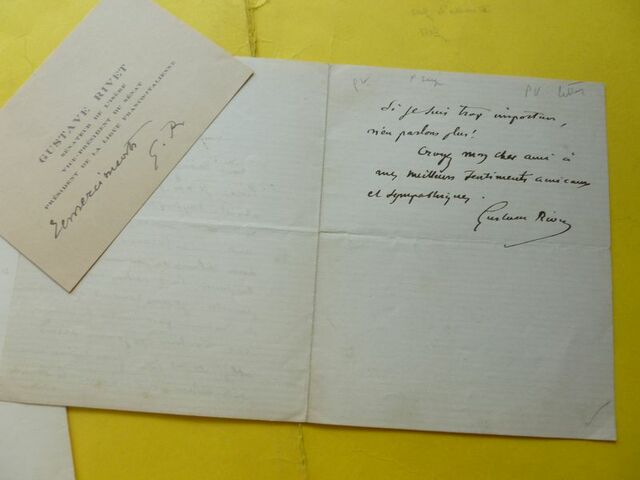 GUSTAVE RIVET
SÉNATEUR DE L'ISÈRE
VICE-PRÉSIDENT DU SÉNAT
PRÉSIDENT DE LA LIGUE FRANCO-ITALIENNE
remerciments
G. R
Si je suis trop importun,
n'en parlons plus!
Croyez mon cher ami à
mes meilleurs sentiments amicaux
et sympathiques.
Gustave Rivet